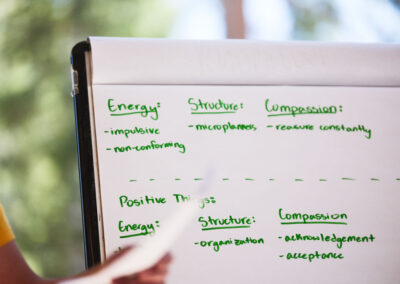 Energy: Structure: Compassion:
-impulsive -microplanners -reassure constantly
-non-conforming
Positive Things:
Energy: Structure: Compassion
-organization -acknowledgement
-acceptance